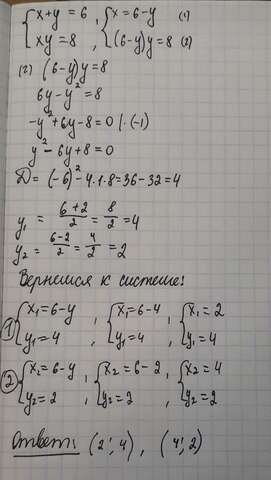 { x+y=6 , { x=6-y (1)
{ xy=8 , { (6-y)y=8 (2)
(2) (6-y)y=8
6y-y²=8
-y²+6y-8=0 |·(-1)
y²-6y+8=0
D=(-6)²-4·1·8=36-32=4
y₁ = (6+2)/2 = 8/2 = 4
y₂ = (6-2)/2 = 4/2 = 2
Вернемся к системе:
1) { x₁=6-y , { x₁=6-4 , { x₁=2
{ y₁=4 , { y₁=4 , { y₁=4
2) { x₂=6-y , { x₂=6-2 , { x₂=4
{ y₂=2 , { y₂=2 , { y₂=2
Ответ: (2; 4), (4; 2)